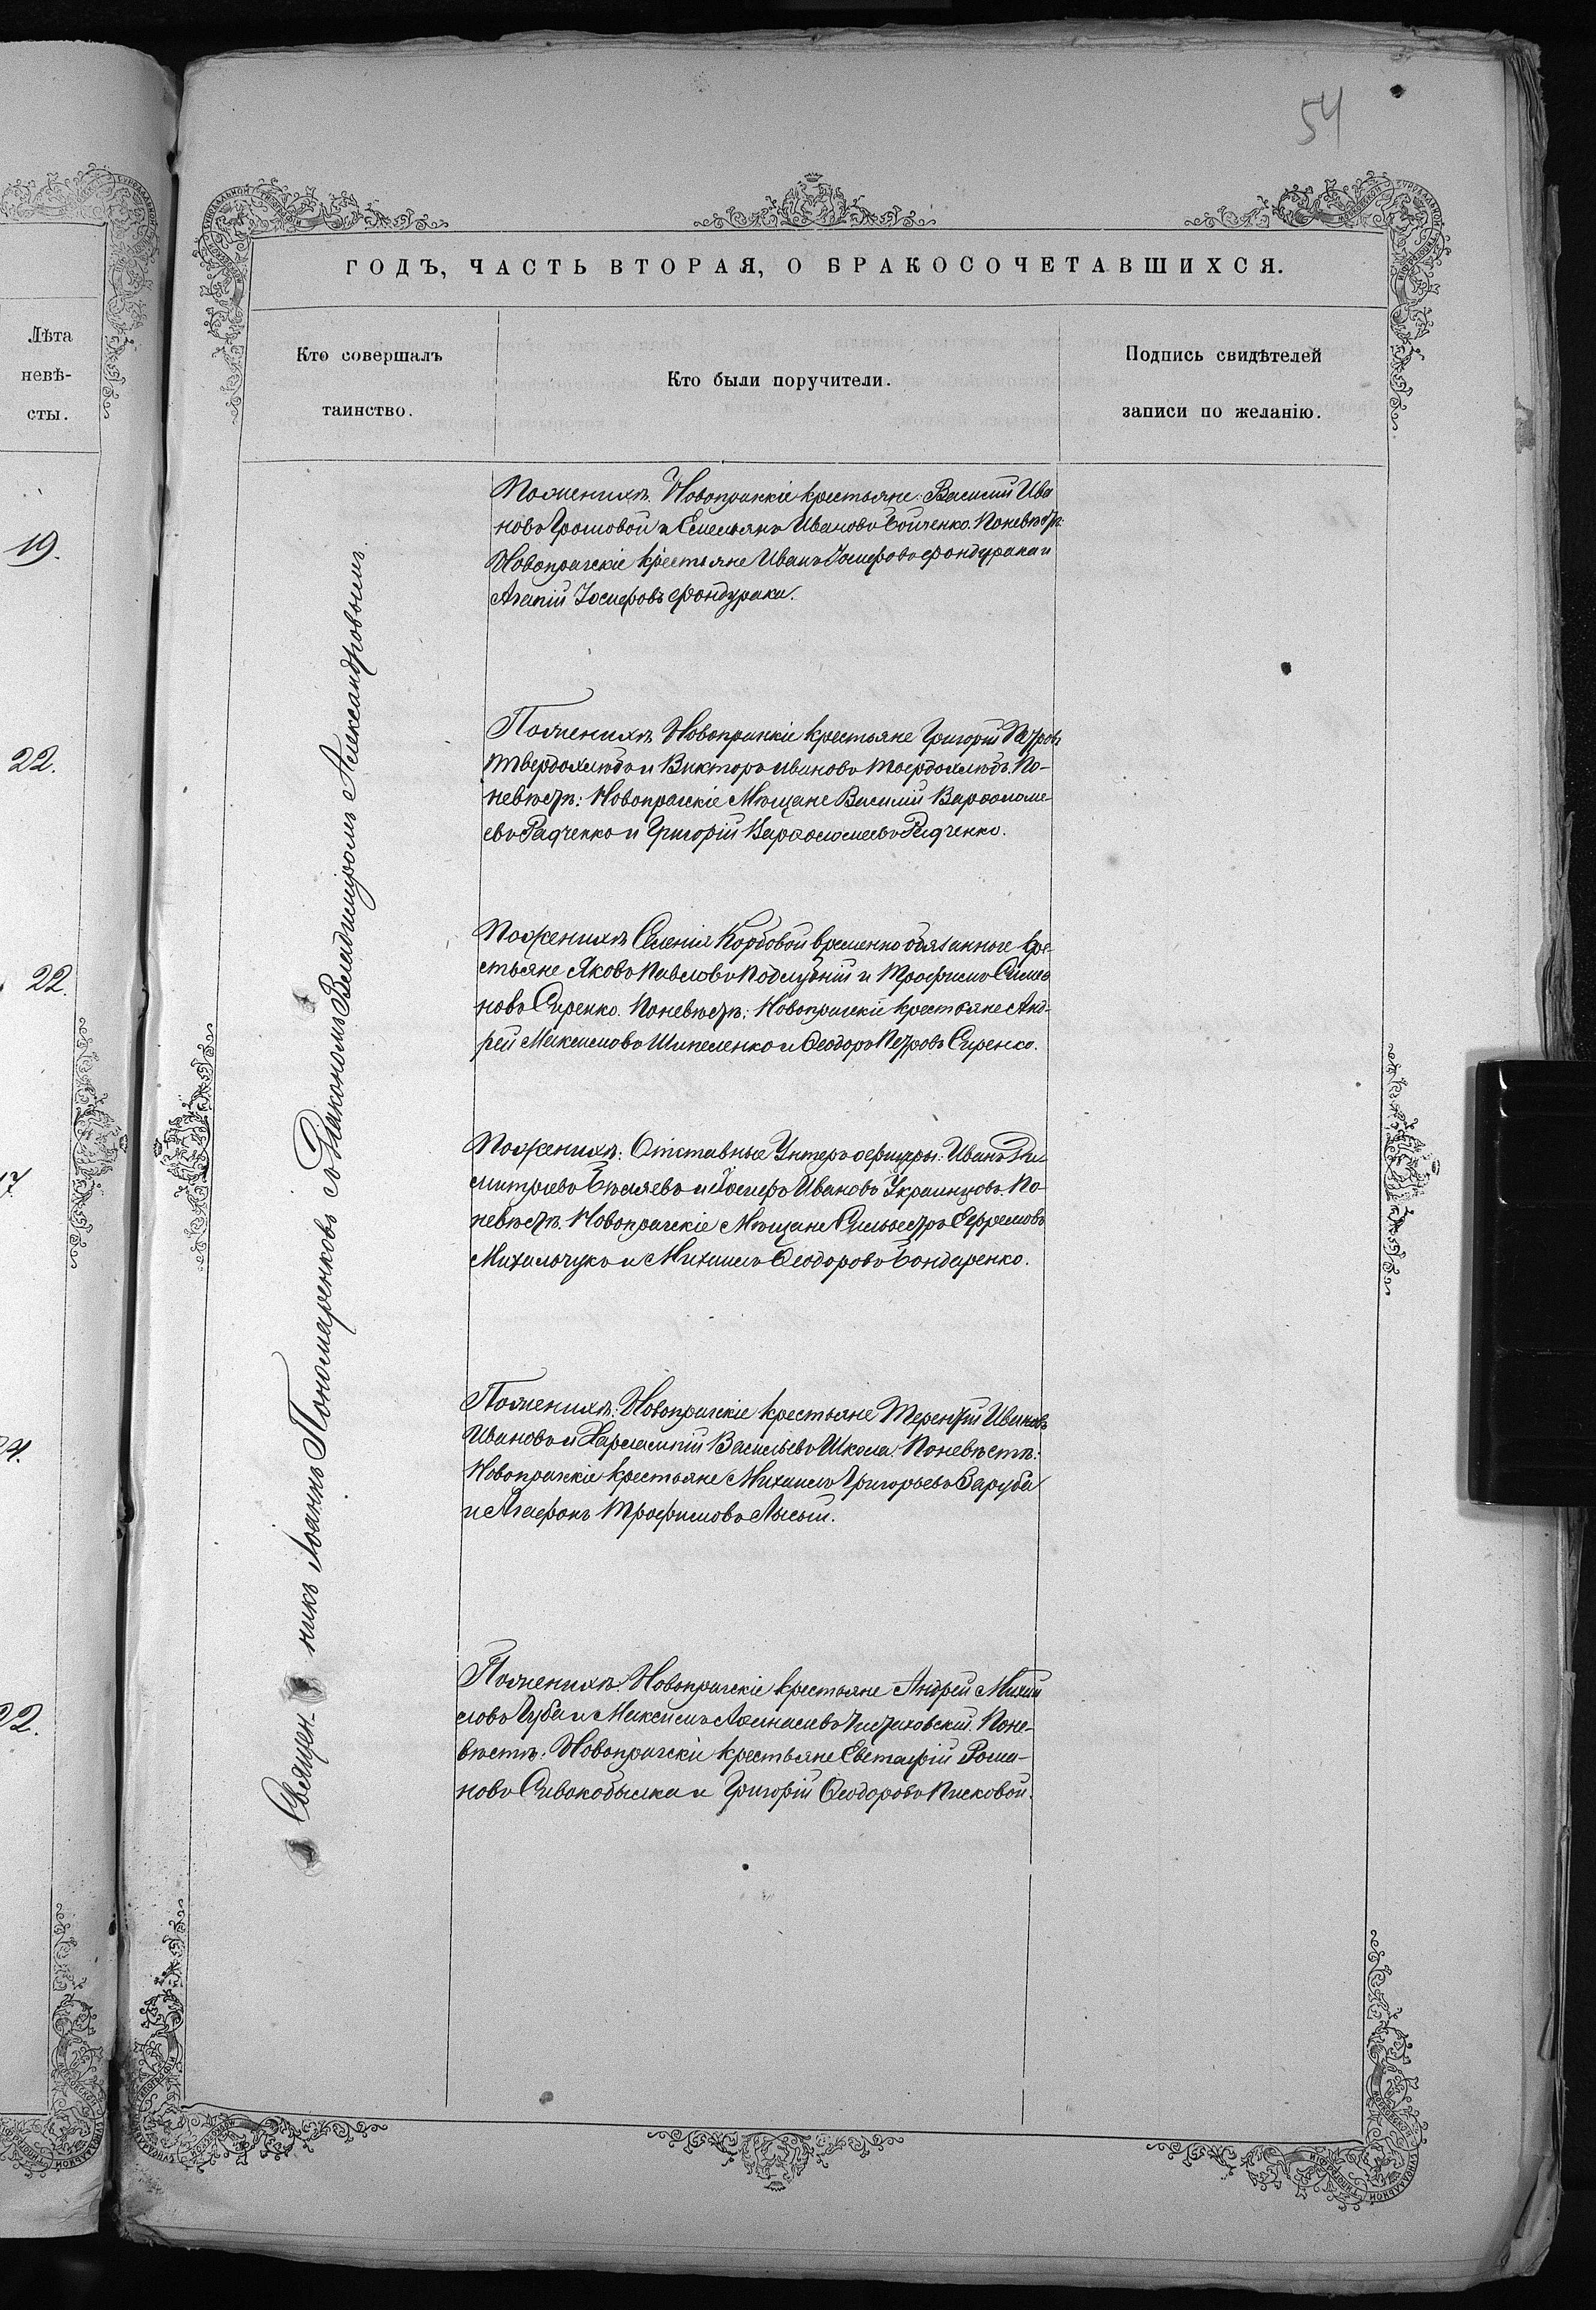 54
ГОДЪ, ЧАСТЬ ВТОРАЯ, О БРАКОСОЧЕТАВШИХСЯ.
Лѣта
невѣ-
сты.
Кто совершалъ
таинство.
Кто были поручители.
Подпись свидѣтелей
записи по желанію.
19.
22.
22.
17
22.
Священ-никъ Іоаннъ Пономаренковъ съ Діакономъ Владиміромъ Александровымъ.
Поженихѣ. Новопражскіе крестьяне: Василій Ива
новъ Громовой и Емельянъ Ивановъ Бойченко. Поневѣстѣ:
Новопражскіе крестьяне Иванъ Іосифовъ Фондурака и
Агапій Іосифовъ Фондурака.
Поженихѣ Новопражскіе крестьяне Григорій Петровъ
Твердохлѣбъ и Викторъ Ивановъ Твердохлѣбъ. По-
невѣстѣ: Новопражскіе Мѣщане Василій Варѳоломе
евъ Радченко и Григорій Варѳоломеевъ Радченко.
Поженихѣ Селенія Корбовой временно обязанные кре-
стьяне Яковъ Павловъ Поддубній и Трофимъ Симео
новъ Сиренко. Поневѣстѣ: Новопражскіе крестьяне Анд-
рей Максимовъ Шипеленко и Ѳеодоръ Петровъ Сиренко.
Поженихѣ: Отставные Унтеръ офицеры: Иванъ Ди
митріевъ Бѣляевъ и Іосифъ Ивановъ Украинцовъ. По-
невѣстѣ. Новопражскіе Мѣщане Сильвестръ Ефремовъ
Михальчукъ и Михаилъ Ѳеодоровъ Бондаренко.
Поженихѣ: Новопражскіе крестьяне Терентій Ивановъ
Ивановъ и Харлампій Васильевъ Школа. Поневѣстѣ:
Новопражскіе крестьяне Михаилъ Григорьевъ Заруба
и Агафонъ Трофимовъ Лысый.
Поженихѣ. Новопражскіе крестьяне Андрей Михаи
ловъ Губа и Максимъ Аѳанасіевъ Поне-
вѣстѣ: Новопражскіе крестьяне Евстафій Рома-
новъ Сивокобылка и Григорій Ѳеодоровъ Писковой.